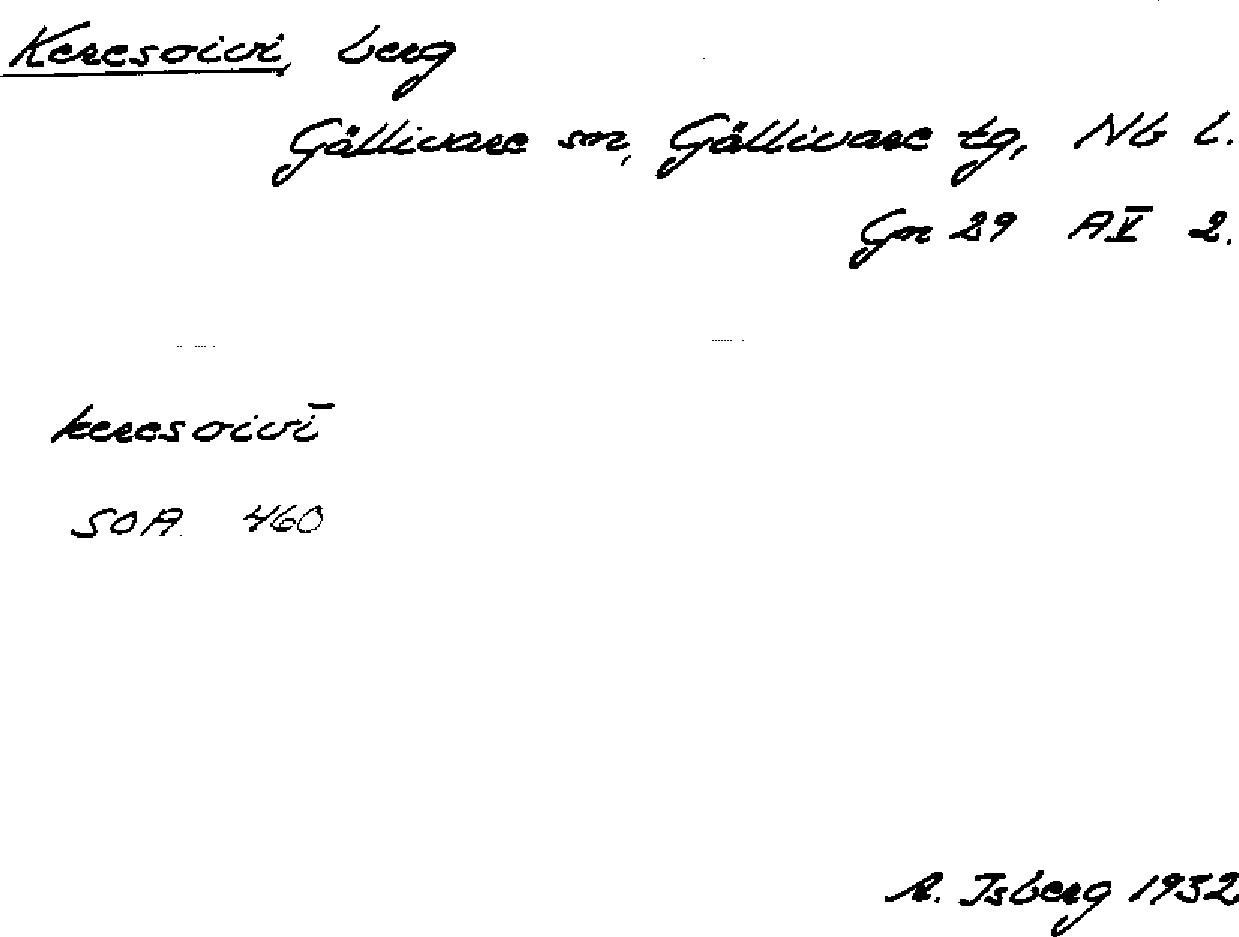 Keresoivi, berg
Gällivare sn, Gällivare tg, Nb l.
Gn 29 AV 2.
keresoivī
SOA 460
A. Isberg 1932